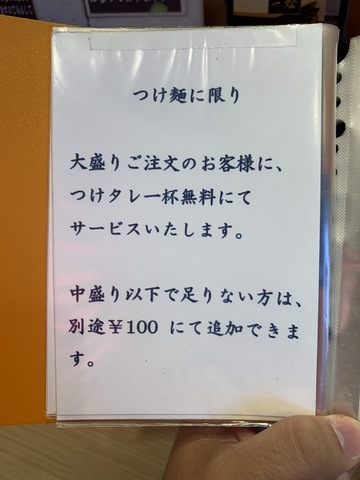 つけ麺に限り
大盛りご注文のお客様に、
つけタレ一杯無料にて
サービスいたします。
中盛り以下で足りない方は、
別途¥100 にて追加できま
す。